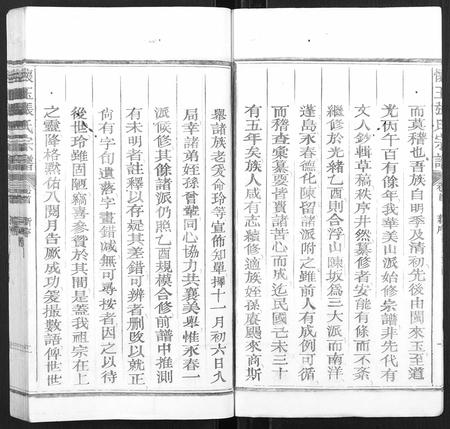 懷玉張氏宗譜
卷首
而莫稽也吾族自明季及清初先後由閩來玉至道
光丙午百有餘年我華美山派始修宗譜非先代有
文人鈔輯草稿秩序井然纂修者安能有條而不紊
繼修於光緒乙酉則合浮山陳坂爲三大派而南洋
蓬島永春德化陳留諸派附之雖前人有成例可循
而稽查彙纂皆賣諸苦心而成迄民國己未三十
有五年矣族人咸有志續修適族姪揆奏颺來商斯
舉諸族老爰命玲等宣佈知單擇十一月初六日九
局幸諸弟姪孫曾輩同心協力共襄美舉惟永春一
派候修其餘諸派仍照乙酉規模合修前譜中推測
有未明者註釋以存疑其差錯可辨者刪改以就正
尚有字句遺落字畫錯滅無可尋按者因之以待
後世玲雖固陋竊喜參贊於其間是蓋我祖宗在上
之靈降格黙佑入閱月告厥成功爰撮數語俾世世
懷玉張氏宗譜